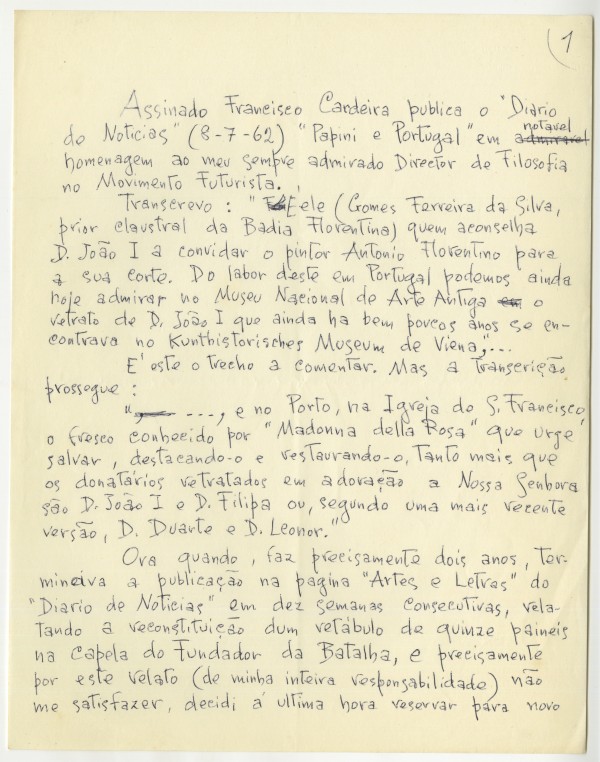 1
Assinado Francisco Cardeira publica o "Diario
de Noticias" (8-7-62) "Papini e Portugal" em admiravel notavel
homenagem ao meu sempre admirado Director de Filosofia
no Movimento Futurista.
Transcrevo: "Eele (Gomes Ferreira da Silva,
prior claustral da Badia Florentina) quem aconselha
D. João I a convidar o pintor Antonio Florentino para
a sua corte. Do labor deste em Portugal podemos ainda
hoje admirar no Museu Nacional de Arte Antiga o
retrato de D. João I que ainda ha bem poucos anos se en-
contrava no Kunthistorisches Museum de Viena,"...
E' este o trecho a comentar. Mas a transcrição
prossegue:
"..., e no Porto, na Igreja de S. Francisco,
o fresco conhecido por "Madonna della Rosa" que urge
salvar, destacando-o e restaurando-o, Tanto mais que
os donatários retratados em adoração a Nossa Senhora
são D. João I e D. Filipa ou, segundo uma mais recente
versão, D. Duarte e D. Leonor."
Ora quando, faz precisamente dois anos, ter-
minava a publicação na pagina "Artes e Letras" do
"Diario de Noticias" em dez semanas consecutivas, rela-
tando a reconstituição dum retábulo de quinze paineis
na Capela do Fundador da Batalha, e precisamente
por este relato (de minha inteira responsabilidade) não
me satisfazer, decidi á ultima hora reservar para novo